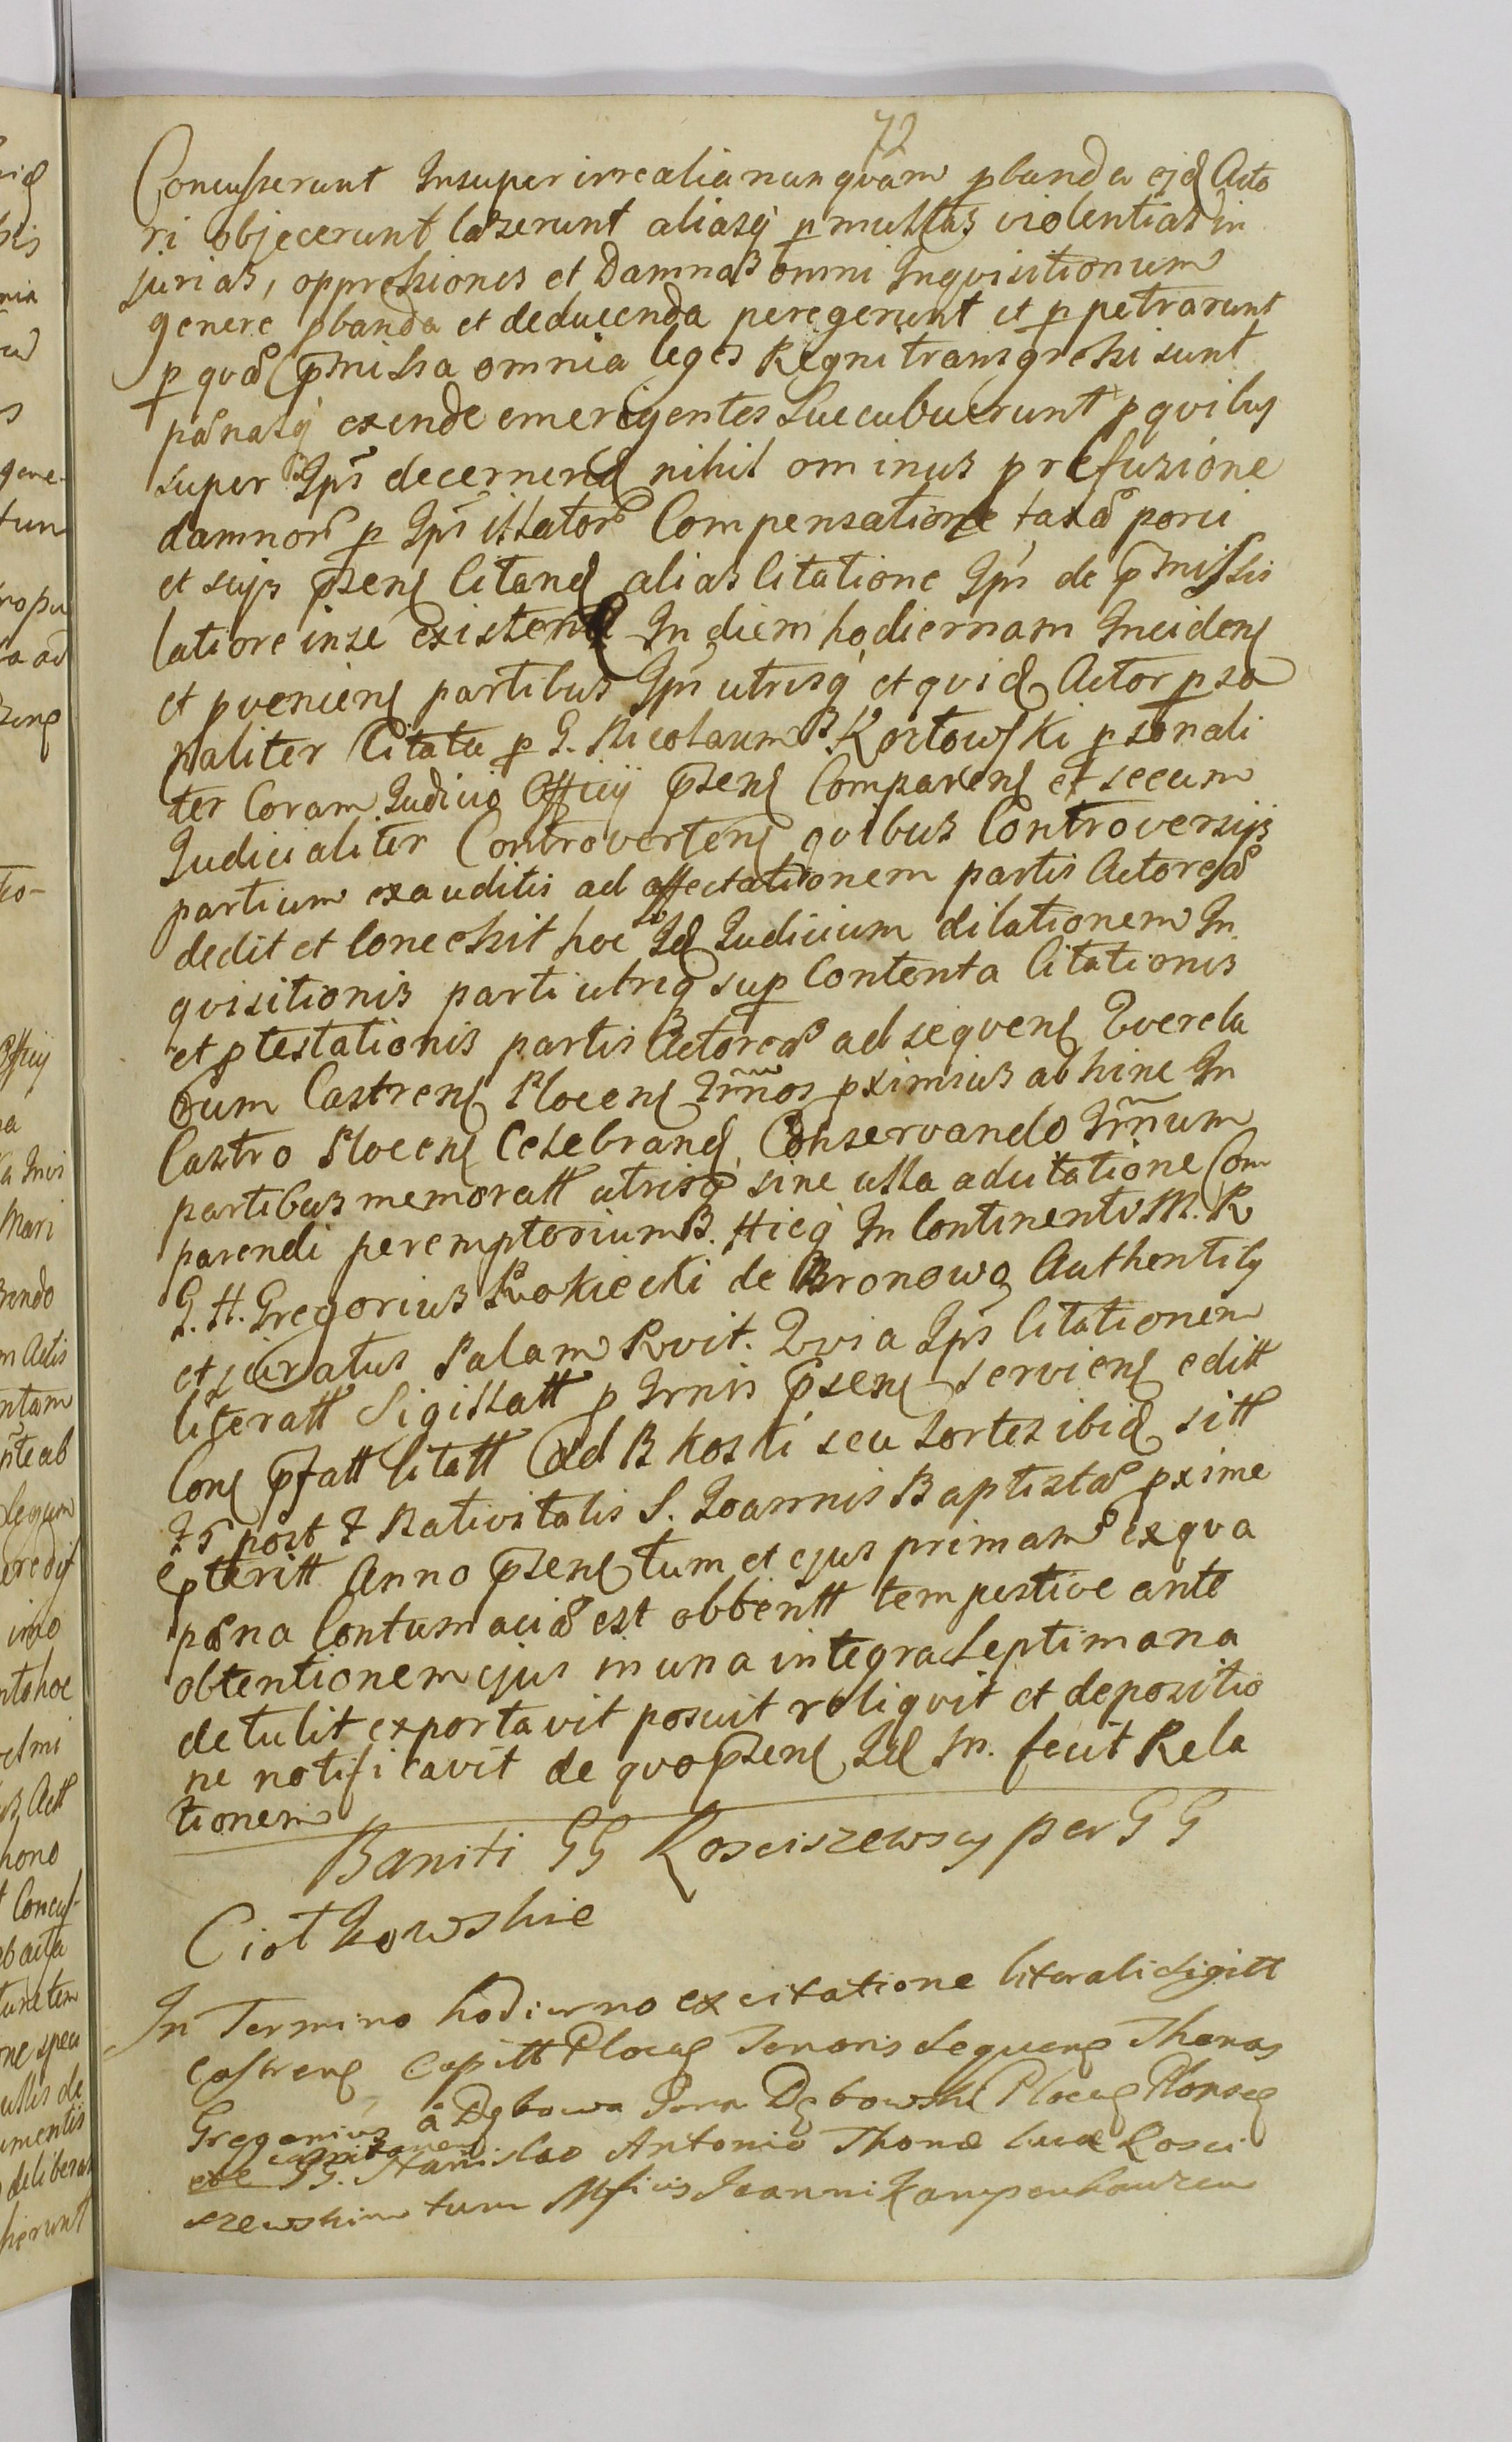 72
Concusserunt Insuper irrealia nunquam pbanda ejd Acto
ri objecerunt læserunt aliasq permultas violentias in
jurias, oppressiones et Damna omni Inquisitionum
genere pbanda et deducenda peregerunt et p petrarunt
p quæ pmissa omnia leges Regni transgressi sunt
pænasq exinde emergentes Succubuerunt p quibus
super Ipis decernend nihil ominus p refusione
damnor p Ipis illator Compensatione taxæ porci
et sujs psens Citand alias Citatione Ipis de pmissis
latiore in se existen In diem hodiernam Inciden
et pvenien partibus Ipis utrisq et quid Actor pso
naliter Citatu p G. Nicolaum Kozłowski psonali
ter Coram Judicio Officij psen Comparen et secum
Judicialiter Controverten quibus Controversijs
partium exauditis ad affectationem partis Actoreæ
dedit et Concessit hoc Id Judicium dilationem In
quisitionis parti utriq sup Contenta Citationis
et ptestationis partis Actoreæ ad sequen Querela
rum Castren Plocen Trmnos pximius ab hinc In
Castro Plocen Celebran, Conservando Trmnum
partibus memoratt utrisq sine ulla adcitatione Com
parendi peremptorium. Hicq In Continenti M. R
G. H. Gregorius Rokicki de Bronowo Authenticus
et juratus Palam Rvit. Quia Ipis Citationem
literatt Sigillatt p Trmis psen servien editt
Con pfatt Citatt Ad B Koski seu Sortes ibid sitt
F 5 post F Nativitatis S. Joannis Baptistæ pxime
pteritt Anno psen tum et ejus primam ex qua
pæna Contumaciæ est obtentt tempestive ante
obtentionem ejus in una integra Septimana
detulit exportavit posuit reliquit et depositio
ne notificavit de quo psen Id M. fecit Rela
tionem
Baniti GG Rosciszewscy per GG
Ciołkowskie
In Termino hodierno ex citatione literali sigill
Castren Capitt Plocen Tenoris sequen Thomas
Gregorius â Dębowa Gora Dębowski Plocen Plonsen
Capitaneus
GG. Stanislao Antonio Thomæ Lucæ Rosci
szewskim tum Mficis Joanni Kampenhauzen